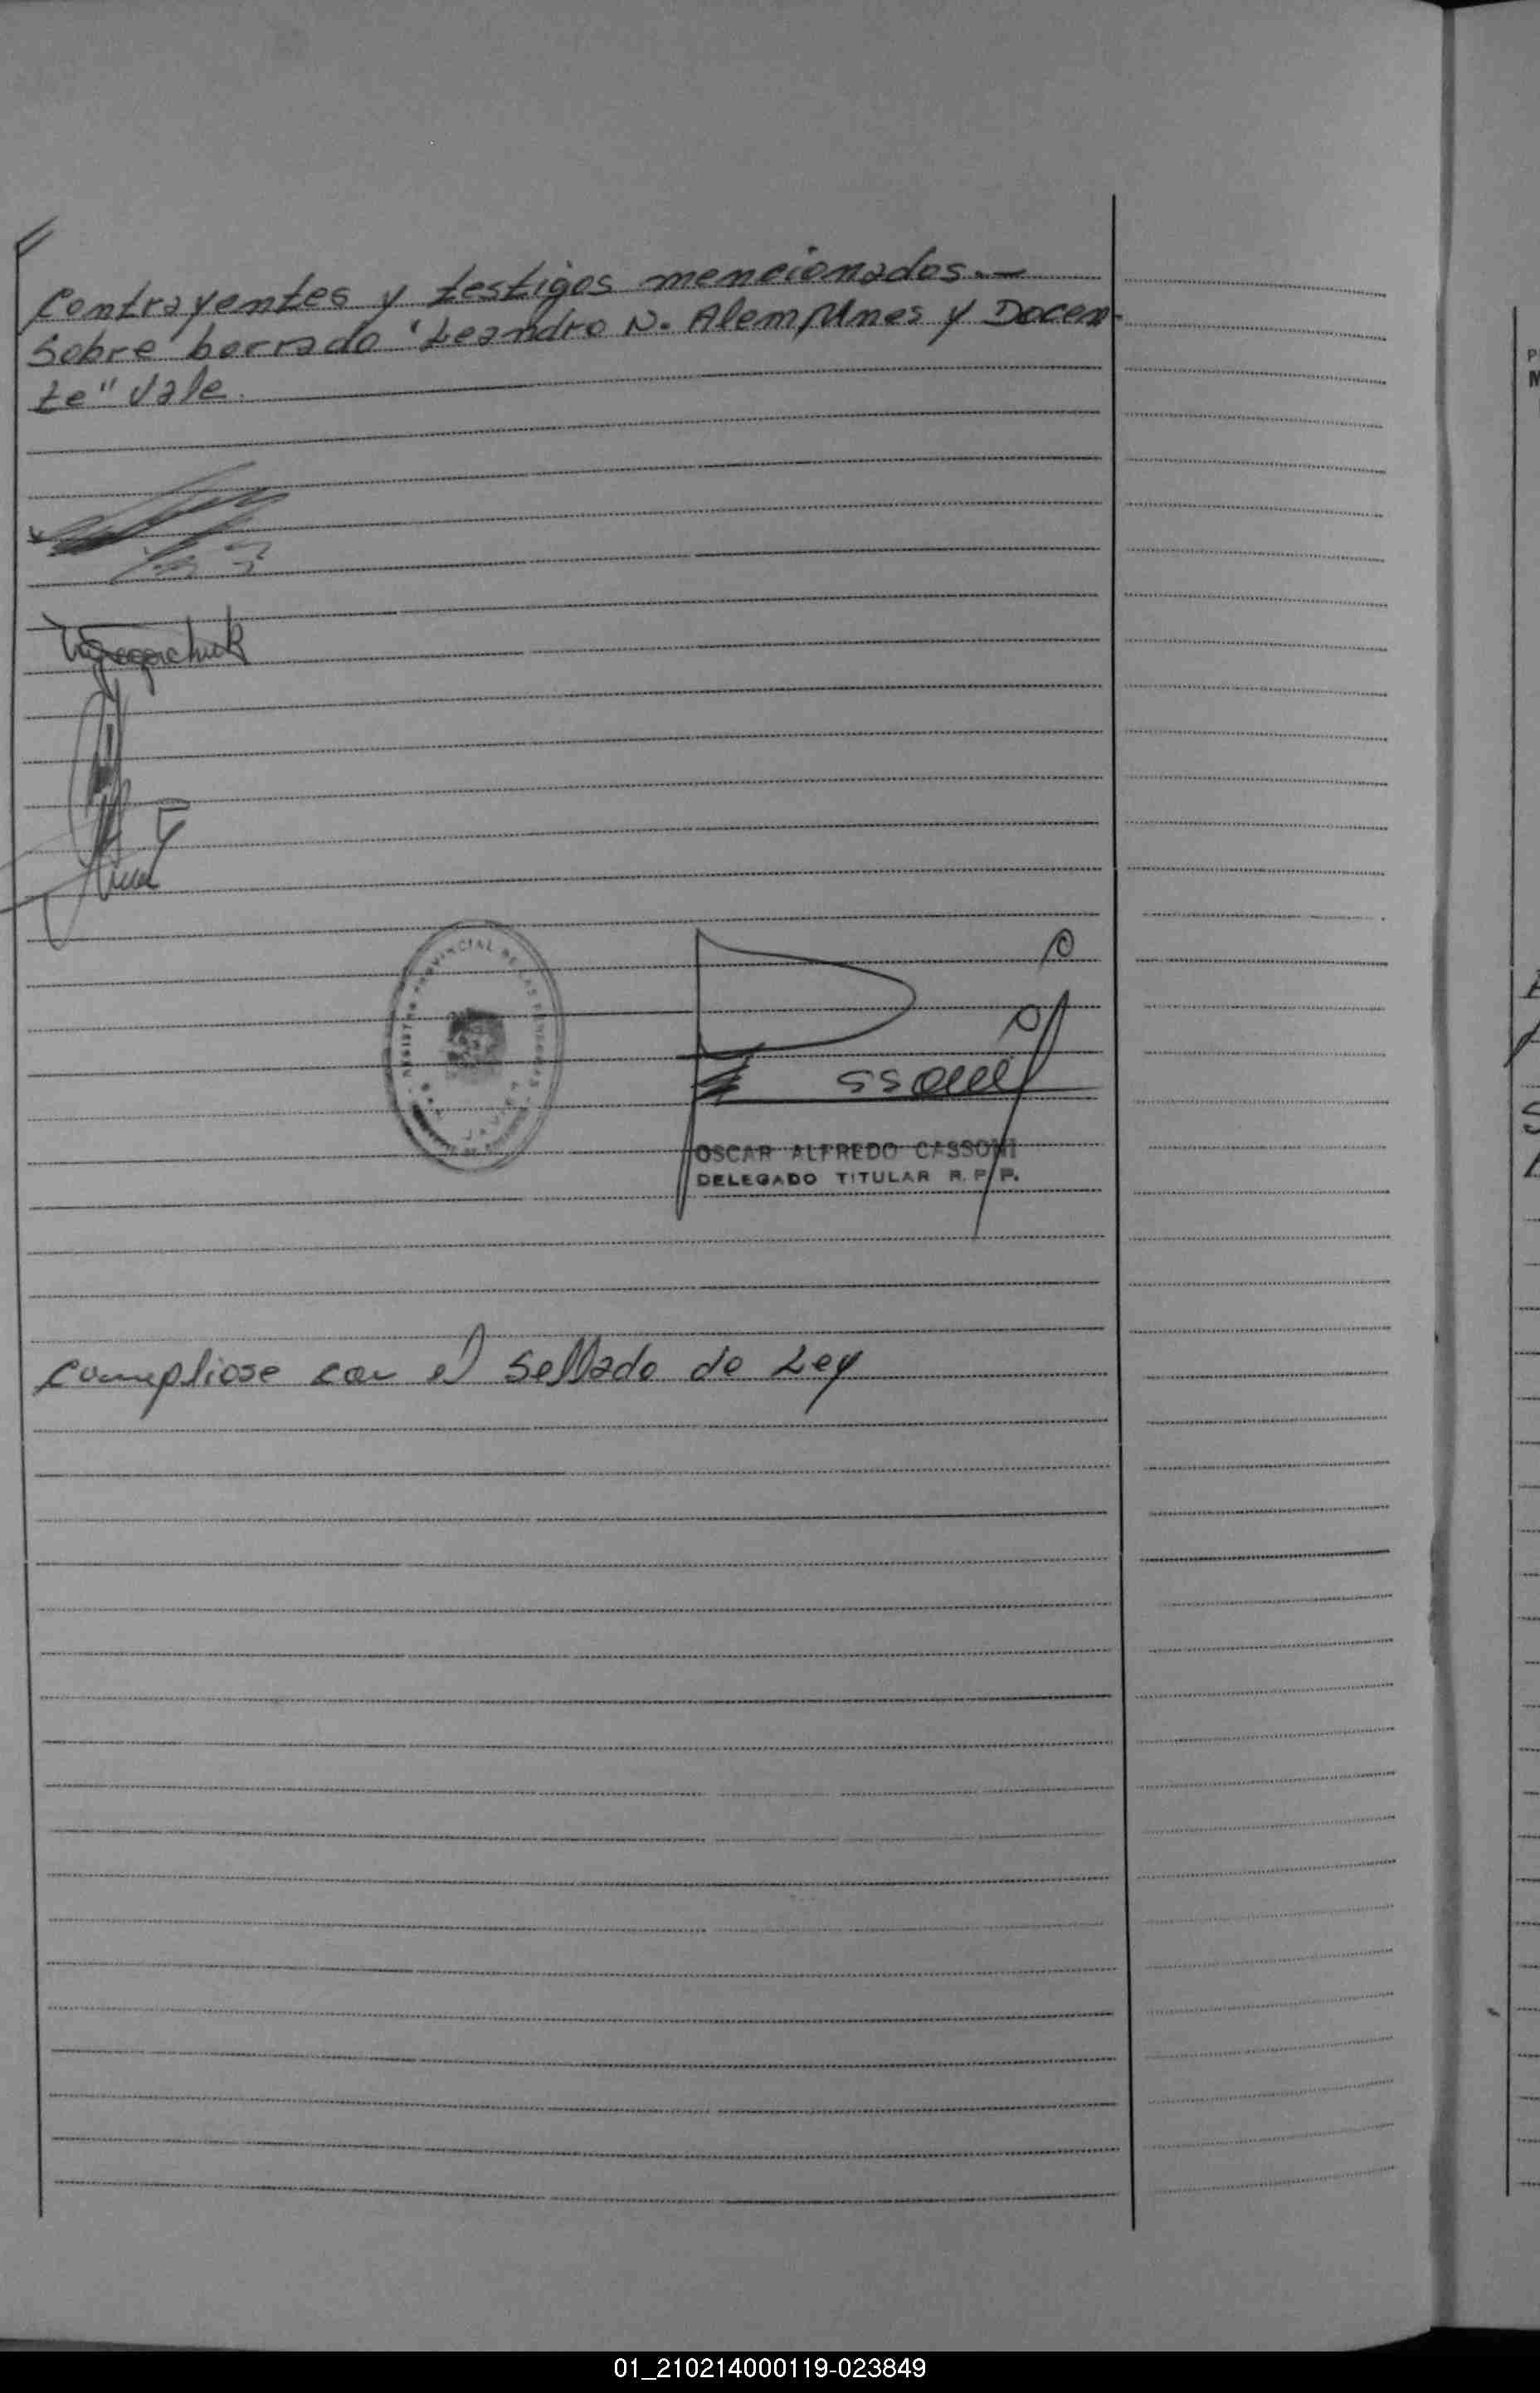 Contrayentes y testigos mencionados.—
Sobre borrado "Leandro N. Alem Mnes y Docen-
te" Vale.
REGISTRO PROVINCIAL DE LAS PERSONAS
OSCAR ALFREDO CASSONI
DELEGADO TITULAR R.P.P.
Cumpliose con el Sellado de Ley
01_210214000119-023849